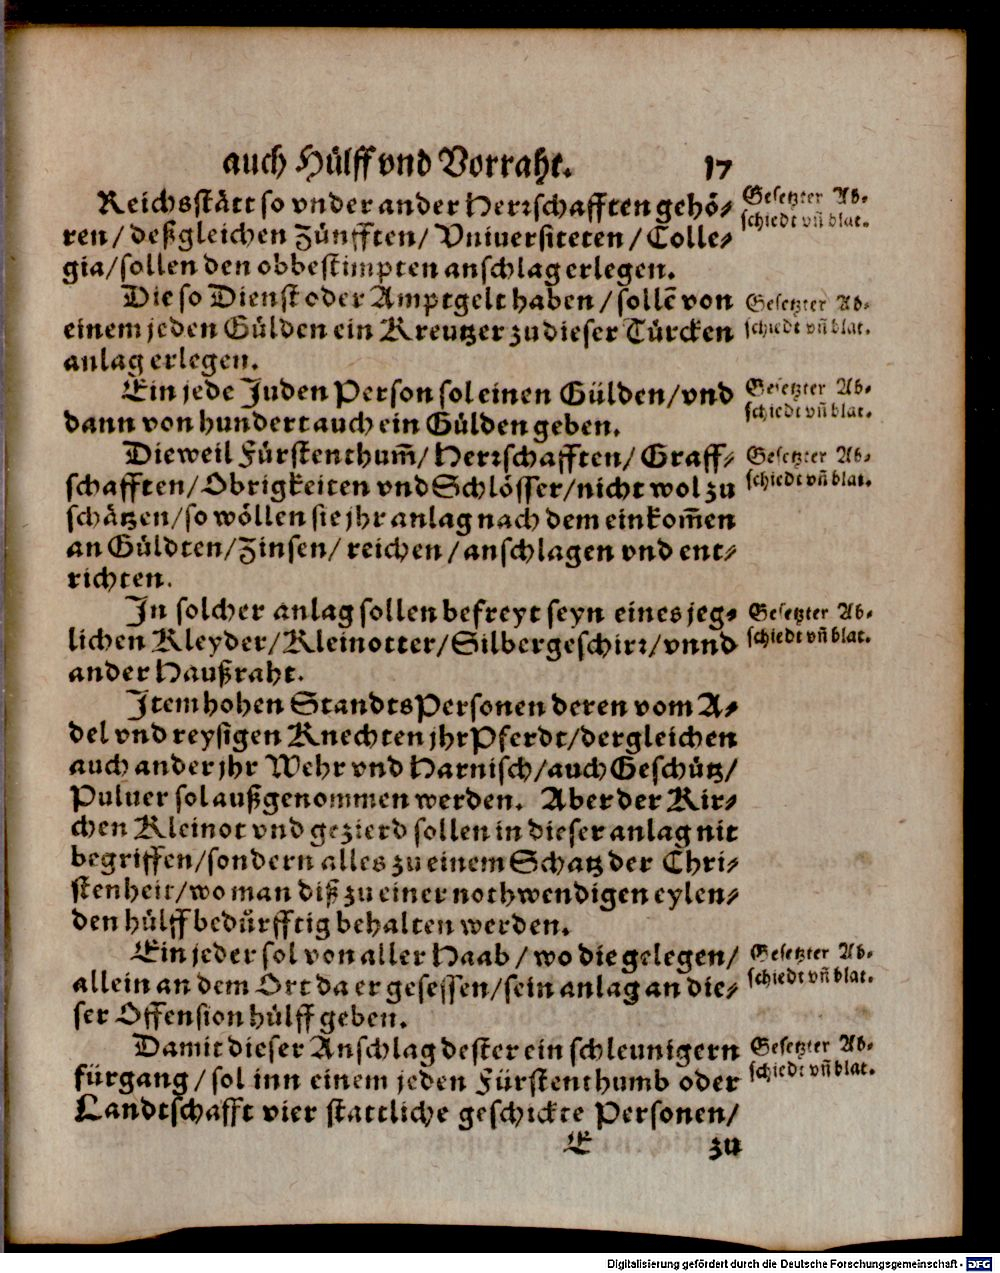 auch Hülff vnd Vorraht. 17
Reichsstätt so vnder ander Herrschafften gehö-
ren / deßgleichen Zünfften / Vniuersiteten / Colle-
gia / sollen den obbestimpten anschlag erlegen.
Gesetzter Ab-
schiedt vñ blat.
Die so Dienst oder Amptgelt haben / sollẽ von
einem jeden Gülden ein Kreutzer zu dieser Türcken
anlag erlegen.
Gesetzter Ab-
schiedt vñ blat.
Ein jede Juden Person sol einen Gülden / vnd
dann von hundert auch ein Gülden geben.
Gesetzter Ab-
schiedt vñ blat.
Dieweil Fürstenthum̃ / Herrschafften / Graff-
schafften / Obrigkeiten vnd Schlösser / nicht wol zu
schätzen / so wöllen sie jhr anlag nach dem einkom̃en
an Güldten / Zinsen / reichen / anschlagen vnd ent-
richten.
Gesetzter Ab-
schiedt vñ blat.
In solcher anlag sollen befreyt seyn eines jeg-
lichen Kleyder / Kleinotter / Silbergeschirr / vnnd
ander Haußraht.
Gesetzter Ab-
schiedt vñ blat.
Item hohen Standts Personen deren vom A-
del vnd reysigen Knechten jhr Pferdt / dergleichen
auch ander jhr Wehr vnd Harnisch / auch Geschütz /
Puluer sol außgenommen werden. Aber der Kir-
chen Kleinot vnd gezierd sollen in dieser anlag nit
begriffen / sondern alles zu einem Schatz der Chri-
stenheit / wo man diß zu einer nothwendigen eylen-
den hülff bedürfftig behalten werden.
Ein jeder sol von aller Haab / wo die gelegen /
allein an dem Ort da er gesessen / sein anlag an die-
ser Offension hülff geben.
Gesetzter Ab-
schiedt vñ blat.
Damit dieser Anschlag dester ein schleunigern
fürgang / sol inn einem jeden Fürstenthumb oder
Landtschafft vier stattliche geschickte Personen /
Gesetzter Ab-
schiedt vñ blat.
E zu
Digitalisierung gefördert durch die Deutsche Forschungsgemeinschaft - DFG